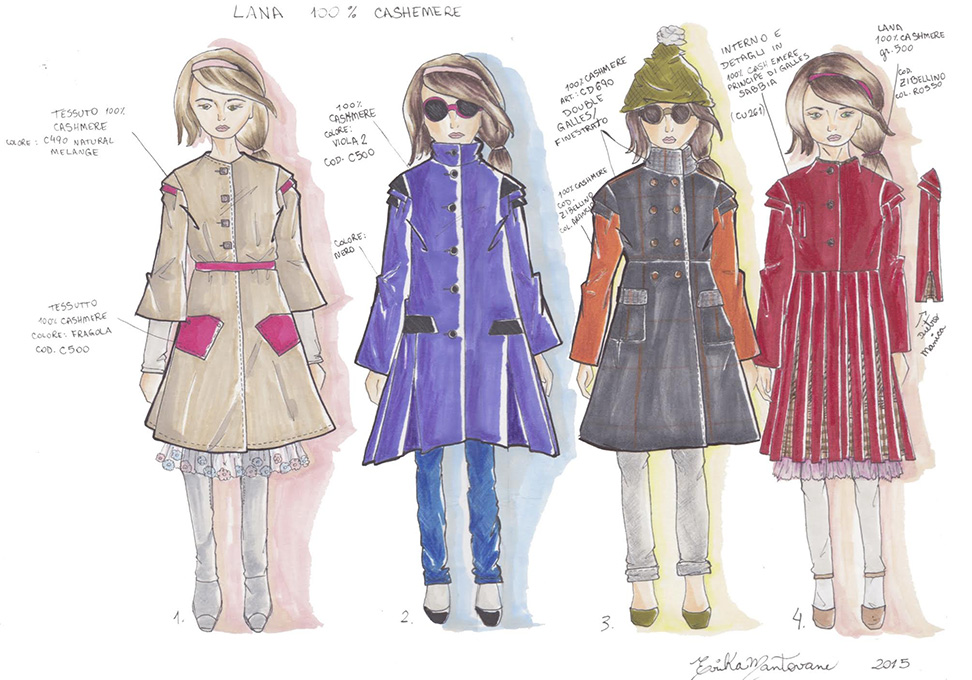 LANA 100% CASHEMERE
TESSUTO 100%
CASHMERE
COLORE: C490 NATURAL
MELANGE
TESSUTTO
100% CASHMERE
COLORE: FRAGOLA
COD. C500
1.
100%
CASHMERE
COLORE:
VIOLA 2
COD. C500
COLORE:
NERO
2.
100% CASHMERE
ART.: CD690
DOUBLE
GALLES/
FINESTRATO
100% CASHMERE
COD.
ZIBELLINO
COL.
3.
INTERNO E
DETAGLI IN
100% CASHEMERE
PRINCIPE DI GALLES
SABBIA
(CU261)
LANA
100% CASHMERE
gr. 500
COD.
ZIBELLINO
COL. ROSSO
Dietro
Manica
4.
Erika Mantovane 2015